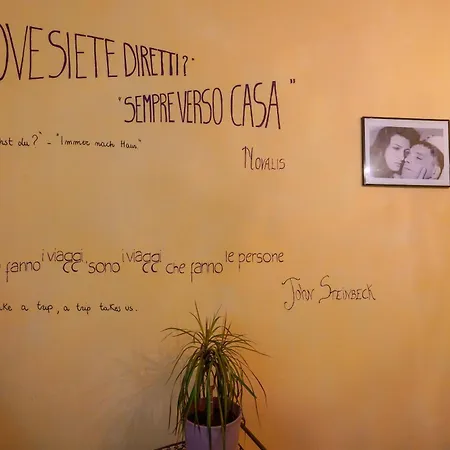 OVE SIETE DIRETTI?"
"SEMPRE VERSO CASA"
hst du?" - "Immer nach Haus."
NOVALIS
fanno i viaggi, sono i viaggi che fanno le persone
John Steinbeck
ake a trip, a trip takes us.